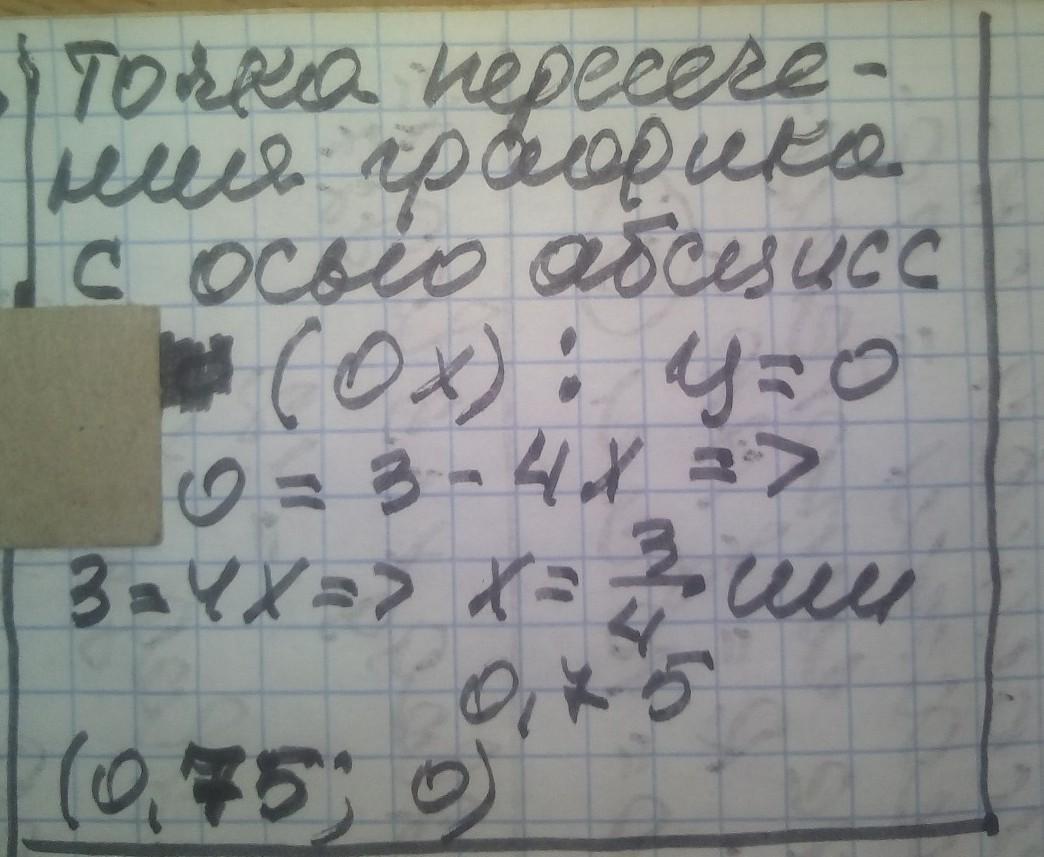 Точка пересече-
ния графика
с осью абсцисс
(Ox): y=0
0 = 3 - 4x =>
3 = 4x => x = 3/4 или
0,75
(0,75; 0)